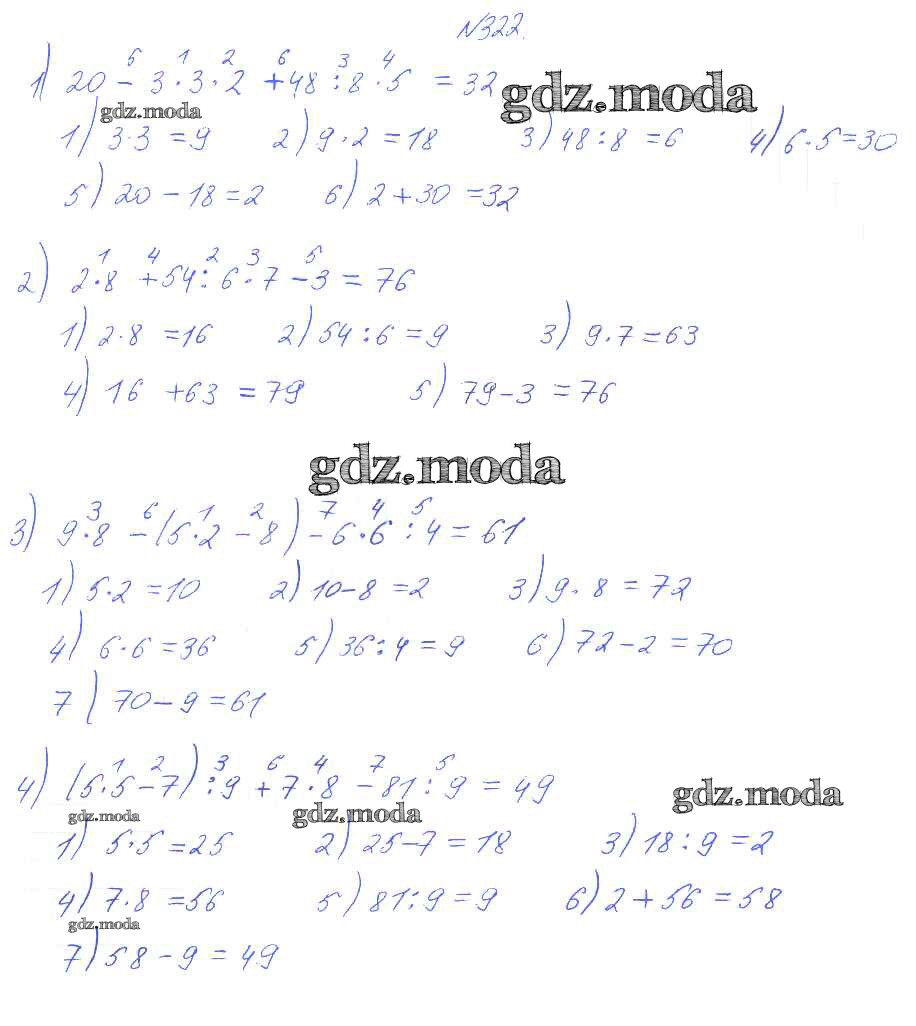 №322.
5 1 2 6 3 4
1) 20 - 3·3·2 + 48 : 8 · 5 = 32
gdz.moda
gdz.moda
1) 3·3 = 9 2) 9·2 = 18 3) 48 : 8 = 6 4) 6·5 = 30
5) 20 - 18 = 2 6) 2 + 30 = 32
1 4 2 3 5
2) 2·8 + 54 : 6 · 7 - 3 = 76
1) 2·8 = 16 2) 54 : 6 = 9 3) 9·7 = 63
4) 16 + 63 = 79 5) 79 - 3 = 76
gdz.moda
3 6 1 2 7 4 5
3) 9·8 - (5·2 - 8) - 6·6 : 4 = 61
1) 5·2 = 10 2) 10 - 8 = 2 3) 9·8 = 72
4) 6·6 = 36 5) 36 : 4 = 9 6) 72 - 2 = 70
7) 70 - 9 = 61
1 2 3 6 4 7 5
4) (5·5 - 7) : 9 + 7·8 - 81 : 9 = 49
gdz.moda
gdz.moda gdz.moda
1) 5·5 = 25 2) 25 - 7 = 18 3) 18 : 9 = 2
4) 7·8 = 56 5) 81 : 9 = 9 6) 2 + 56 = 58
gdz.moda
7) 58 - 9 = 49